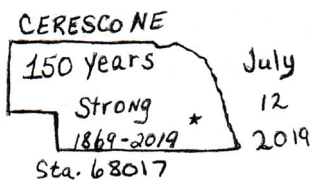 CERESCO NE
150 years
Strong
1869-2019
Sta. 68017
July
12
2019